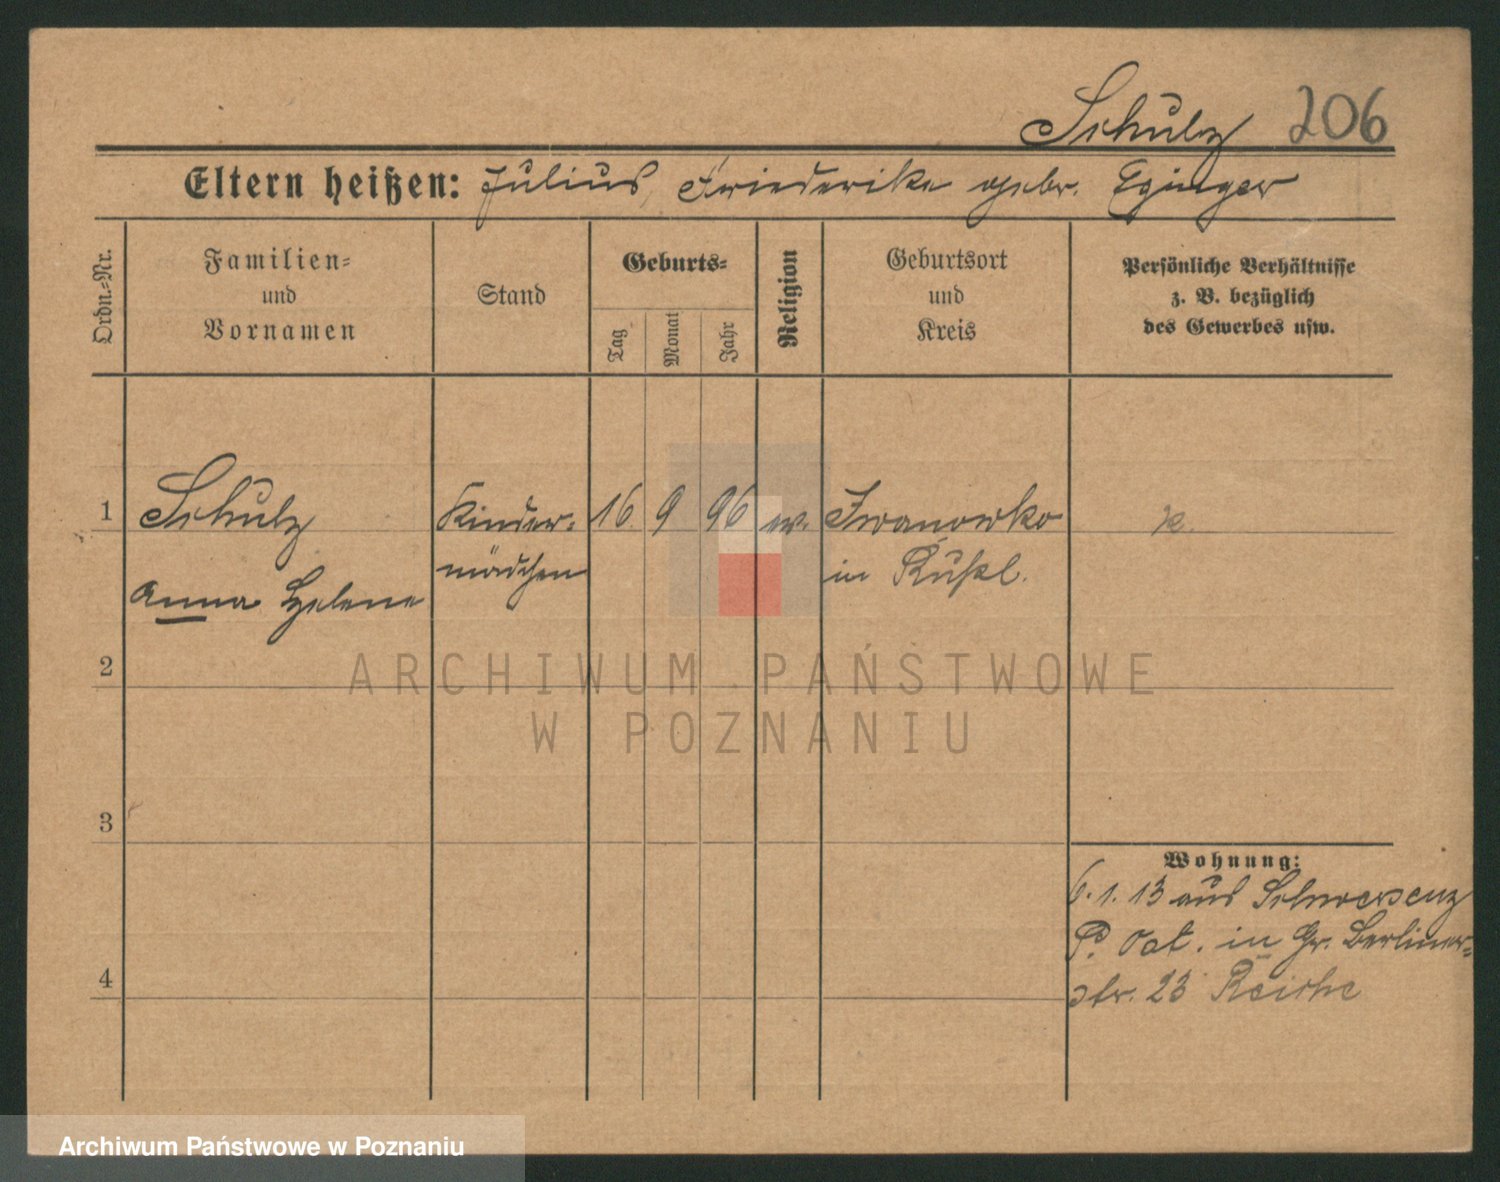 Schulz 206
Eltern heißen: Julius, Friederike gebr. Eginger
Ordn.-Nr.
Familien-
und
Vornamen
Stand
Geburts-
Tag
Monat
Jahr
Religion
Geburtsort
und
Kreis
Persönliche Verhältnisse
z. B. bezüglich
des Gewerbes usw.
1 Schulz Kinder- 16 9 96 ev. Iwanowko k.
mädchen in Rußl.
Anna Helene
2
3
4
Wohnung:
6.1.13 aus Schwersenz
P. Ost. in Gr. Berliner-
str. 23 Reiche
ARCHIWUM PAŃSTWOWE
W POZNANIU
Archiwum Państwowe w Poznaniu